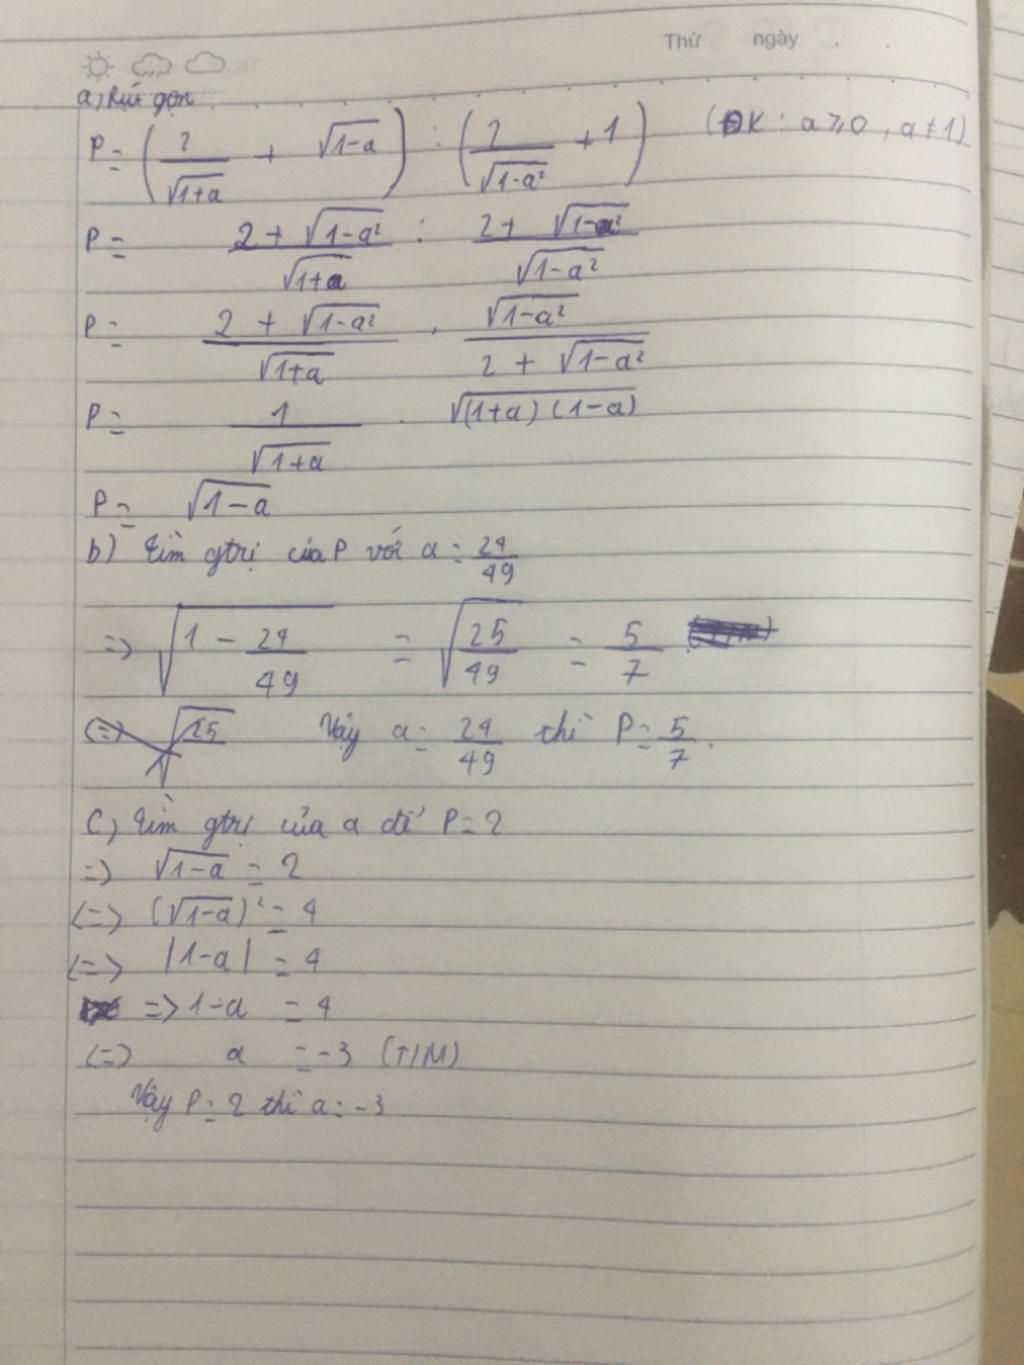 Thứ ngày
a, Rút gọn
P = (2/√(1+a) + √(1-a)) : (2/√(1-a²) + 1) (ĐK: a ≥ 0, a ≠ 1)
P = (2 + √(1-a²))/√(1+a) : (2 + √(1-a²))/√(1-a²)
P = (2 + √(1-a²))/√(1+a) . √(1-a²)/(2 + √(1-a²))
P = 1/√(1+a) . √((1+a)(1-a))
P = √(1-a)
b) Tìm gtrị của P với a = 24/49
=> √(1 - 24/49) = √(25/49) = 5/7
<=> √25 Vậy a = 24/49 thì P = 5/7.
C, Tìm gtrị của a để P = 2
=> √(1-a) = 2
<=> (√(1-a))² = 4
<=> |1-a| = 4
=> 1-a = 4
<=> a = -3 (T/M)
Vậy P = 2 thì a = -3